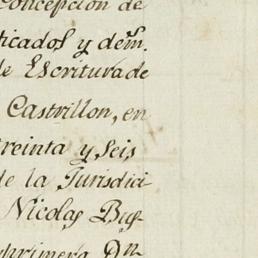 Concepcion de
ticados y dem.
de Escritura de
Castrillon, en
treinta y seis
de la Jurisdici
Nicolas Bus
primera